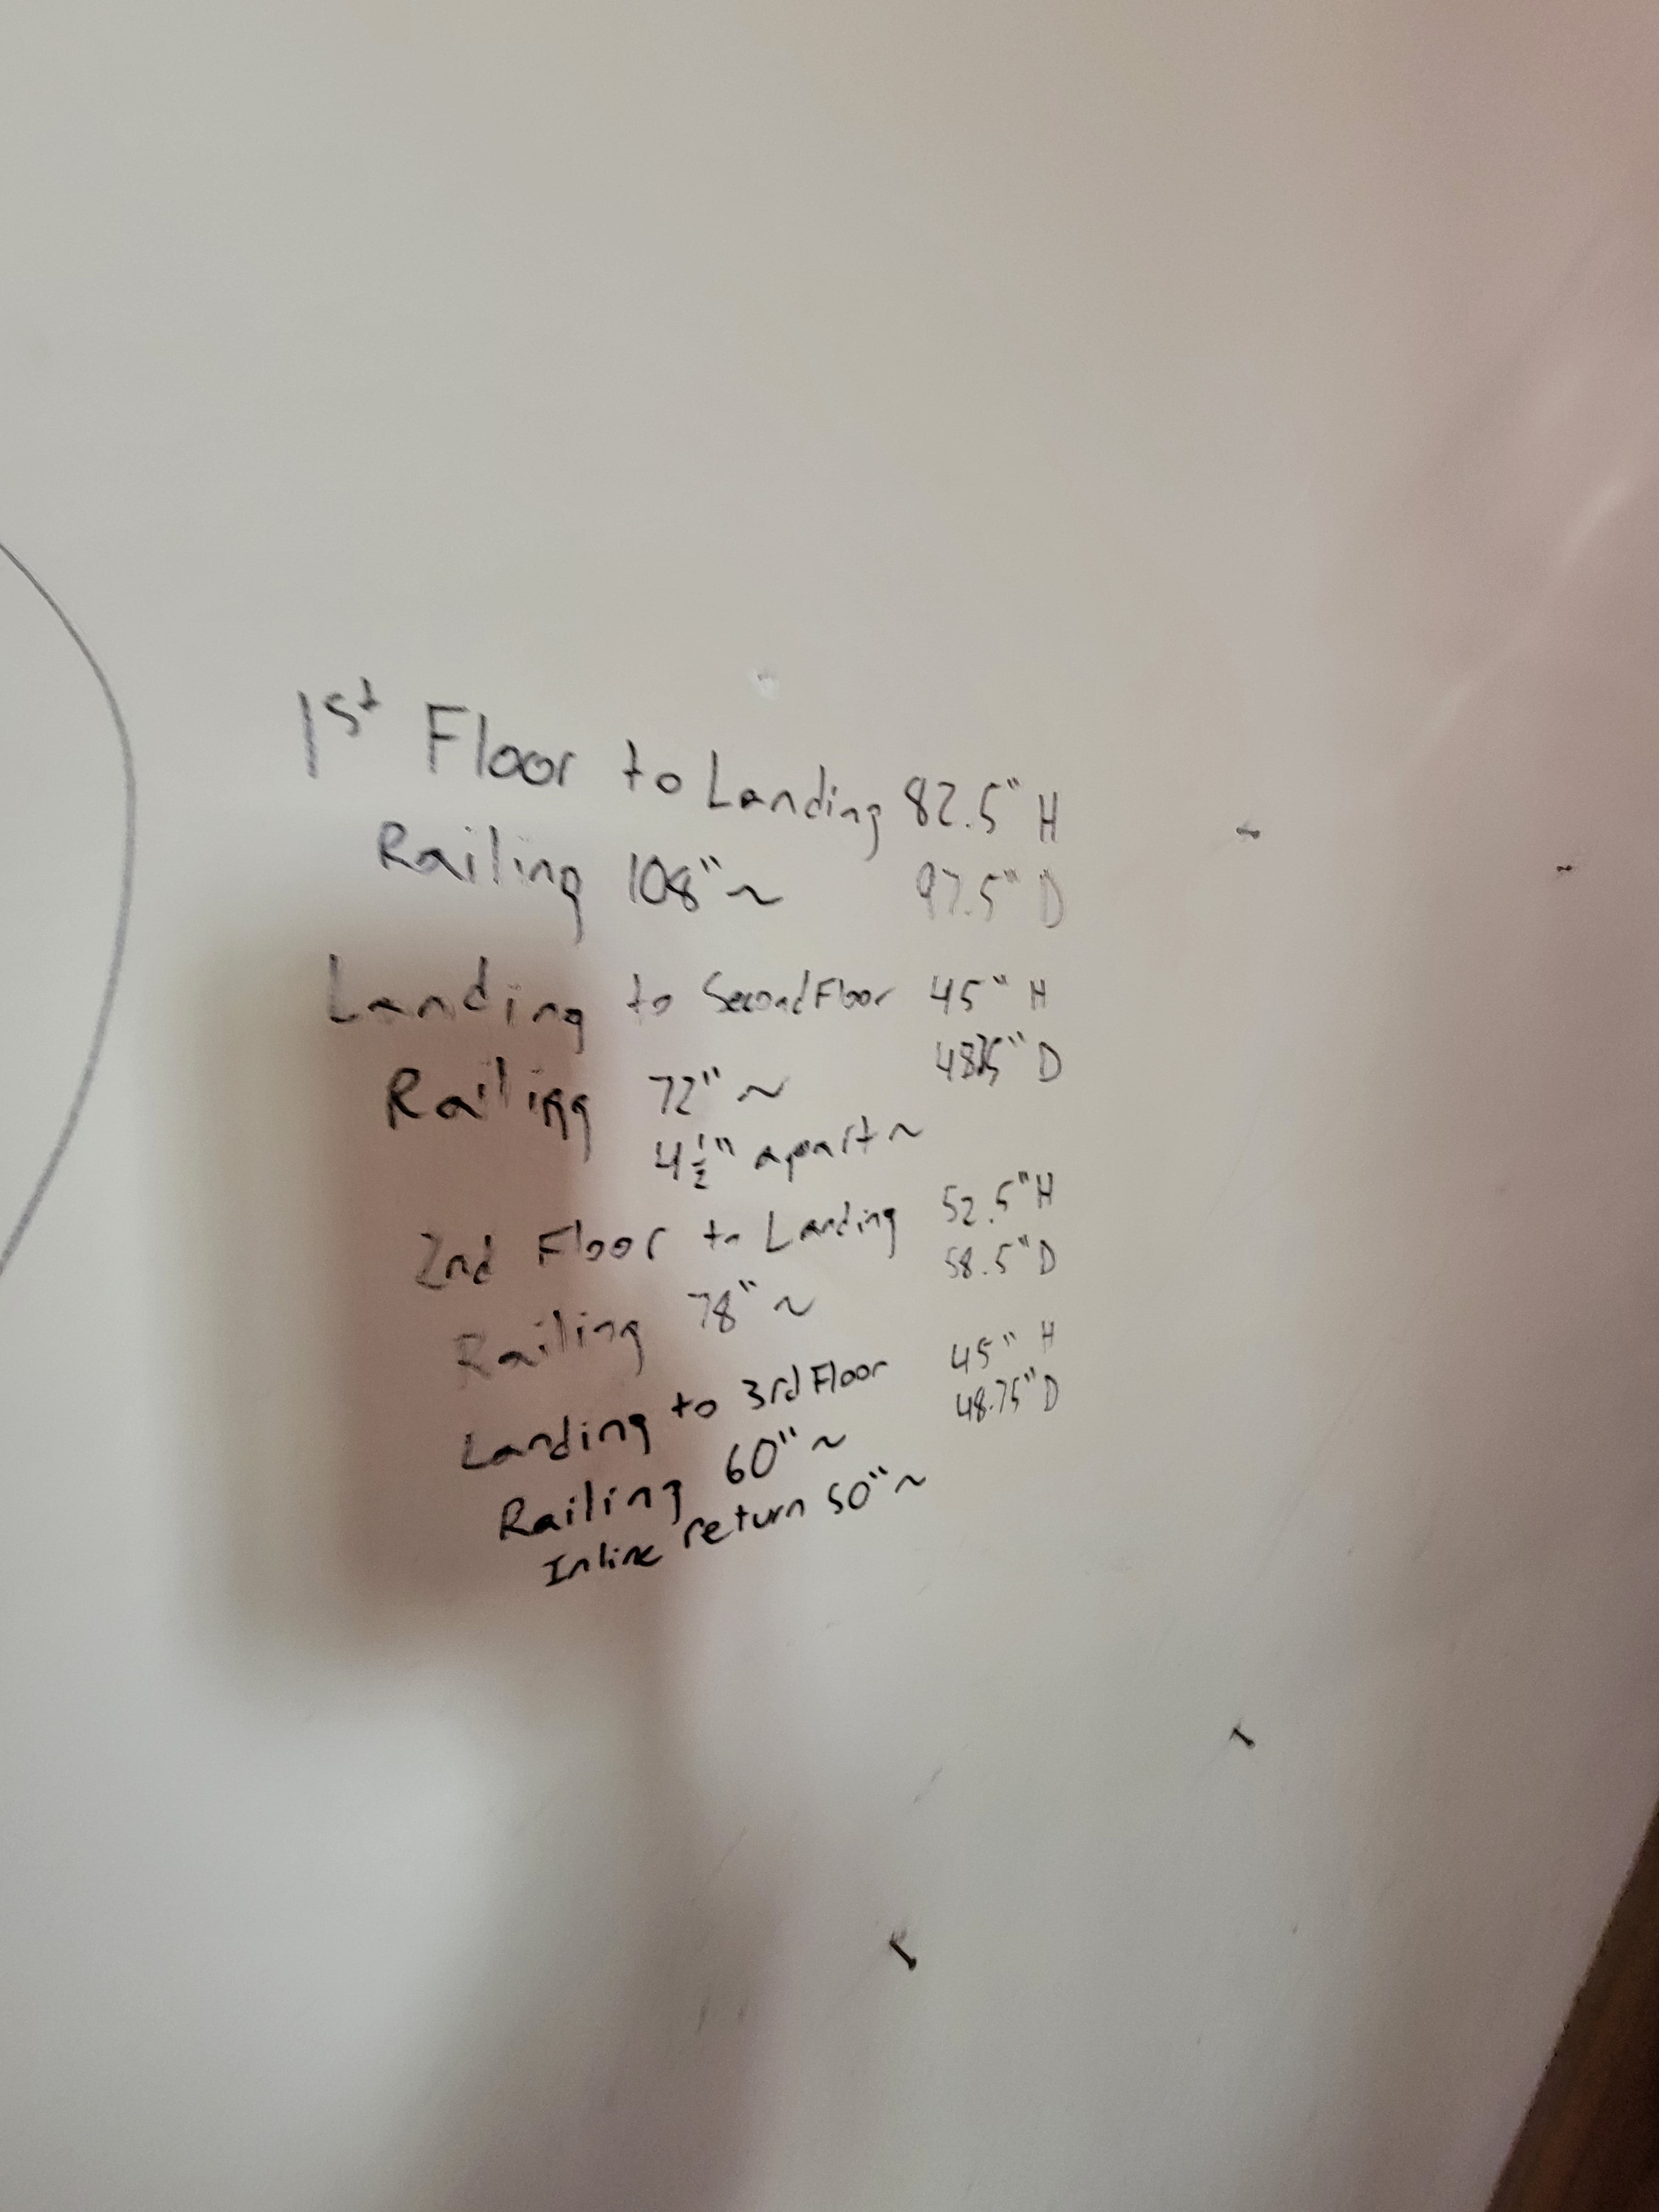 1st Floor to Landing 82.5" H
Railing 108" ~ 97.5" D
Landing to Second Floor 45" H
48.75" D
Railing 72" ~
4 1/2" apart ~
2nd Floor to Landing 52.5" H
58.5" D
Railing 78" ~
Landing to 3rd Floor 45" H
48.75" D
Railing 60" ~
Inline return 50" ~